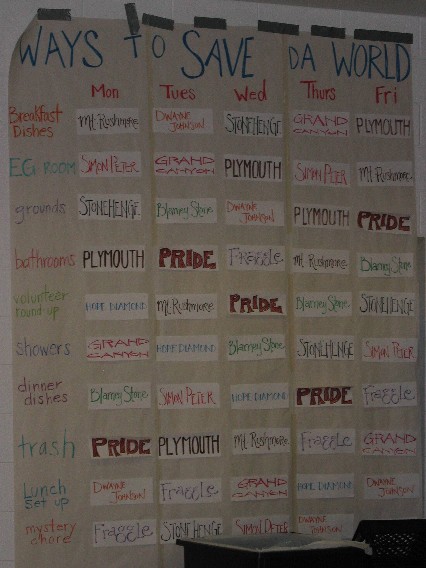 WAYS TO SAVE DA WORLD
Mon Tues Wed Thurs Fri
Breakfast Dishes Mt. Rushmore DWAYNE JOHNSON STONEHENGE GRAND CANYON PLYMOUTH
EG ROOM SIMON PETER GRAND CANYON PLYMOUTH SIMON PETER Mt. Rushmore
grounds STONEHENGE Blarney Stone DWAYNE JOHNSON PLYMOUTH PRIDE
bathrooms PLYMOUTH PRIDE Fraggle Mt. Rushmore Blarney Stone
volunteer round-up HOPE DIAMOND Mt. Rushmore PRIDE Blarney Stone STONEHENGE
showers GRAND CANYON HOPE DIAMOND Blarney Stone STONEHENGE SIMON PETER
dinner dishes Blarney Stone SIMON PETER HOPE DIAMOND PRIDE Fraggle
trash PRIDE PLYMOUTH Mt. Rushmore Fraggle GRAND CANYON
Lunch set up DWAYNE JOHNSON Fraggle GRAND CANYON HOPE DIAMOND DWAYNE JOHNSON
mystery chore Fraggle STONEHENGE SIMON PETER DWAYNE JOHNSON